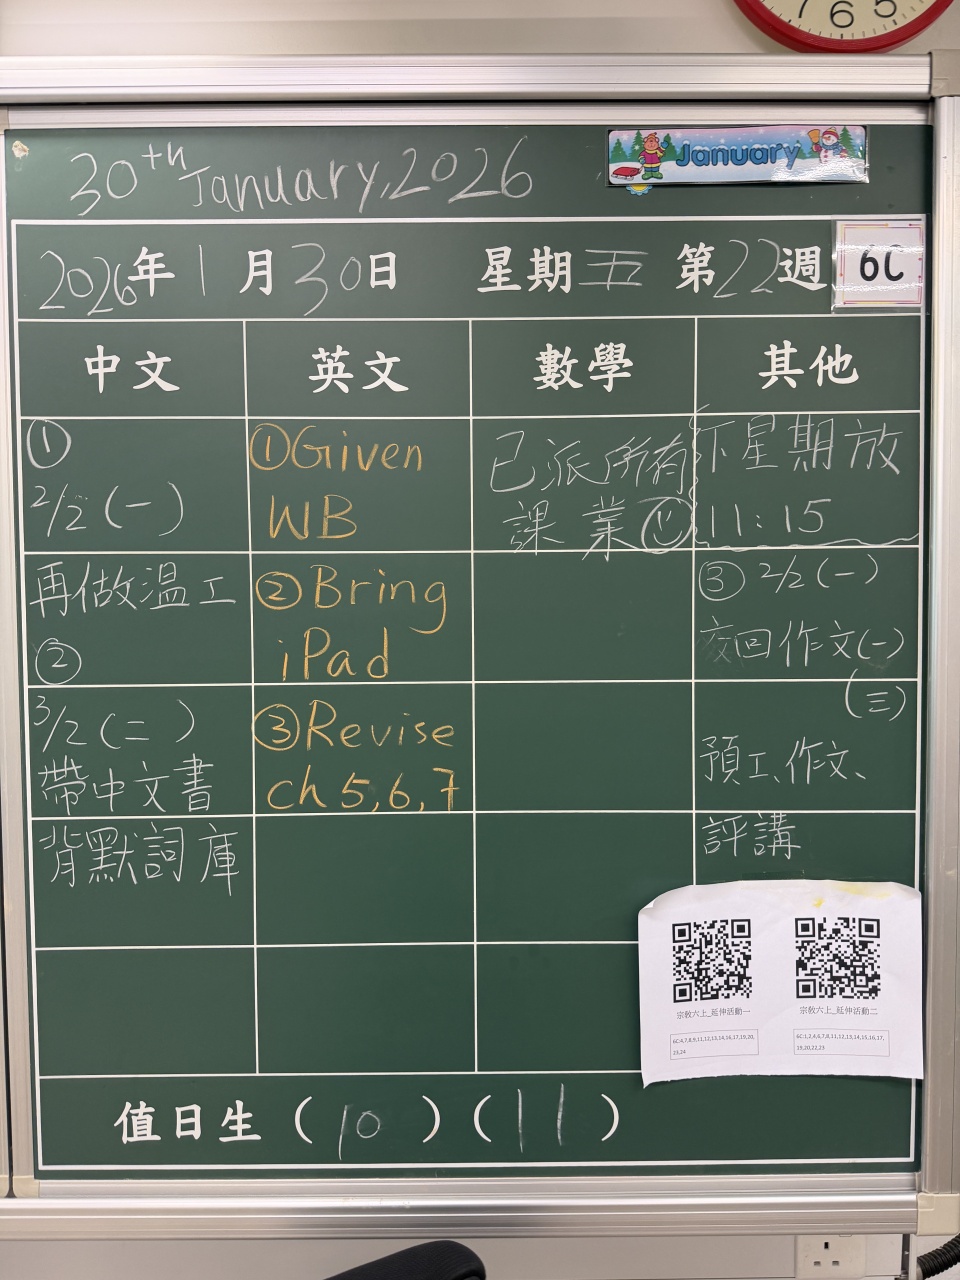 7 6 5
30th January, 2026
January
2026年1月30日 星期五 第22週
6C
中文 英文 數學 其他
①
2/2(一)
再做溫工
②
3/2(二)
帶中文書
背默詞庫
①Given
WB
②Bring
iPad
③Revise
ch 5,6,7
已派所有
課業①
下星期放
11:15
③ 2/2(一)
交回作文(一)
(三)
預工、作文、
評講
宗教六上_延伸活動一
6C:4,7,8,9,11,12,13,14,16,17,19,20,
23,24
宗教六上_延伸活動二
6C:1,2,4,6,7,8,11,12,13,14,15,16,17,
19,20,22,23
值日生(10)(11)